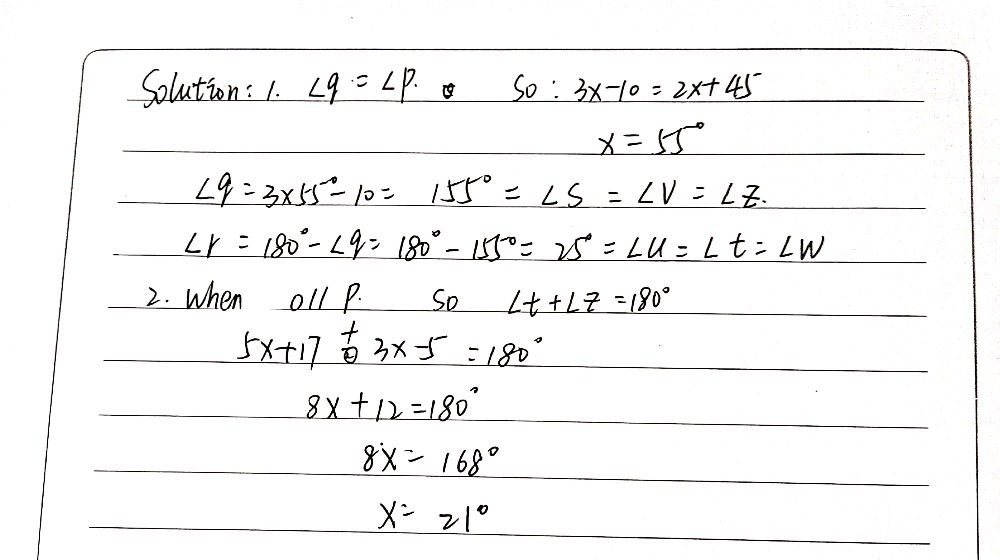 Solution: 1. ∠q = ∠p. So: 3x-10 = 2x+45
x = 55°
∠q = 3x55°-10 = 155° = ∠S = ∠V = ∠Z.
∠r = 180°-∠q = 180°-155° = 25° = ∠u = ∠t = ∠W
2. When o// p. So ∠t+∠Z = 180°
5x+17 + 3x-5 = 180°
8x+12 = 180°
8x = 168°
x = 21°